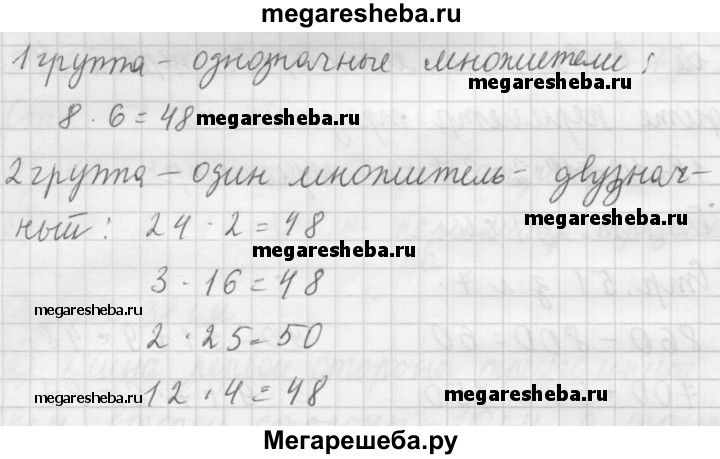 megaresheba.ru
1 группа - однозначные множители:
megaresheba.ru
8 · 6 = 48 megaresheba.ru
2 группа - один множитель - двузнач-
megaresheba.ru
ный: 24 · 2 = 48
megaresheba.ru
3 · 16 = 48
megaresheba.ru
2 · 25 = 50
megaresheba.ru 12 · 4 = 48
Мегарешеба.ру